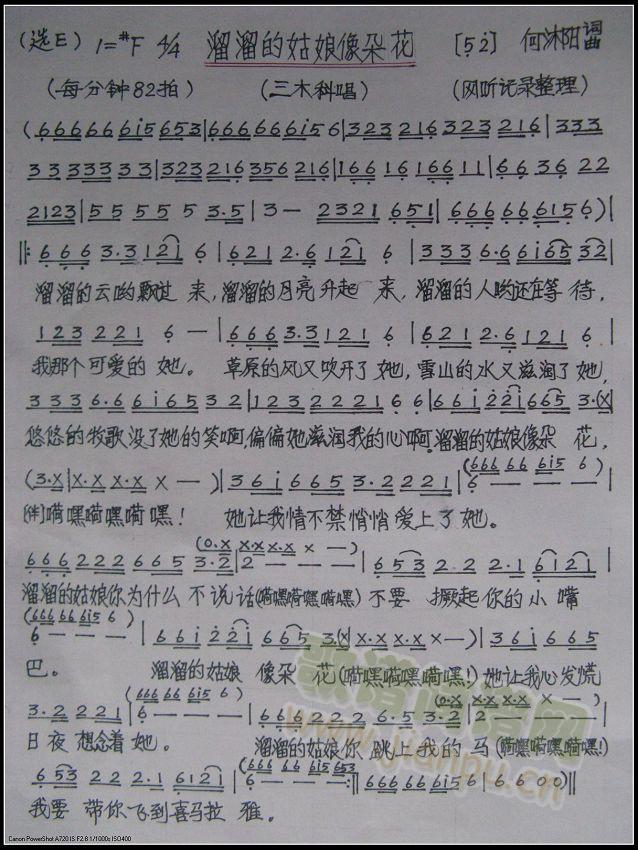 (选E) 1=#F 4/4 溜溜的姑娘像朵花 [5 2] 何沐阳 词曲
(每分钟82拍) (三木科唱) (网听记录整理)
(666666i5 653|666666i5 6|323 216 323 216|333
33 3333 33|323216356 216|166 16166 11|66 36 22
2123|55 55 5 3·5|3— 2321 651|666 66 6156)|
||: 666 3·3 121 6|621 2·6 121 6|333 6·6 6i65 32|
溜溜的云哟飘过 来,溜溜的月亮升起 来,溜溜的人哟还在等 待,
123 221 6 —|666 3·3 121 6|621 2·6 121 6|
我那个可爱的 她。 草原的风又吹开了 她,雪山的水又滋润了她,
333 6·6 6i65 32|123 2221 66|66i 22i 665 3·(x|
悠悠的牧歌没了她的笑啊,偏偏她滋润我的心啊,溜溜的姑娘像朵 花,
(3·x|x·x x·x x —)|36i 665 3·2221|(666 66 6i5 6) 6 — — —|
(伴)嗬嘿嗬嘿嗬嘿 嘿! 她让我情不禁悄悄 爱上了 她。
666 222 665 3·2 (0·x|x·x x·x x —) 2 — — —|653 22 2·1 6121|
溜溜的姑娘你为什么 不说话(嗬嘿嗬嘿嗬嘿) 不要 撅起你的小 嘴
(666 66 6i5 6) 6 — — —|66i 22i 665 3(x|x·x x·x x—)|36i 665
巴。 溜溜的姑娘 像朵 花(嗬嘿嗬嘿嗬嘿!)她让我心发慌
3·2 221|(666 66 6i5 6) 6 — — —|666 222 6·5 3·2 (0·x|x·x x·x x —) 2 — — —|
日夜 想念着 她。 溜溜的姑娘你 跳上我的 马(嗬嘿嗬嘿嗬嘿!)
653 22 2·1 6121|(666 66 6i5 653) 6 — — —:||666 66 6i5 6|6 6 0 0||
我要 带你飞到喜马拉 雅。
www.jianpu.cn
Canon PowerShot A720 IS F2.8 1/1000s ISO400